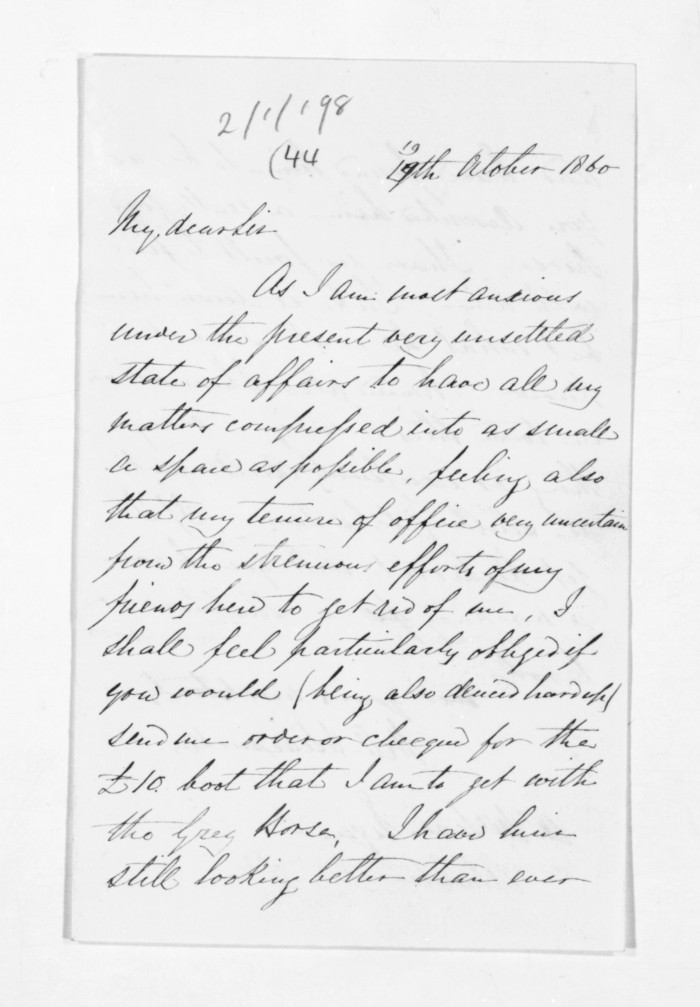 2/1/198
(44
19
19th October 1860
My dear Sir
As I am most anxious
under the present very unsettled
state of affairs to have all my
matters compressed into as small
a space as possible, feeling also
that my tenure of office very uncertain
from the strenuous efforts of my
friends here to get rid of me, I
shall feel particularly obliged if
you would (being also deuced hard up)
send me order or cheque for the
£10. boot that I am to get with
the Grey Horse, I have him
still looking better than ever